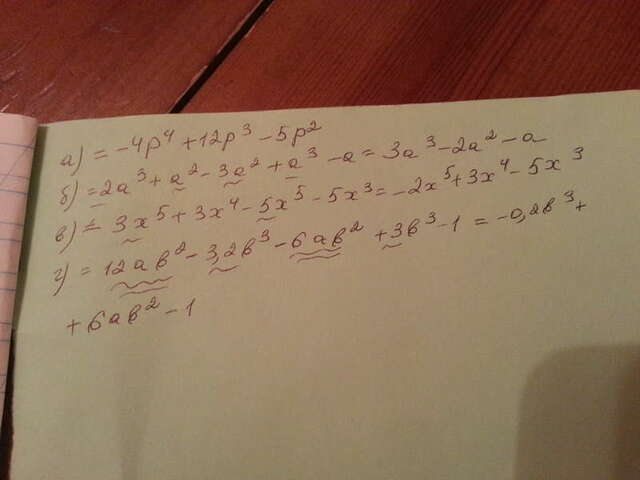 а) = -4p⁴ + 12p³ - 5p²
б) = 2a³ + a² - 3a² + a³ - a = 3a³ - 2a² - a
в) = 3x⁵ + 3x⁴ - 5x⁵ - 5x³ = -2x⁵ + 3x⁴ - 5x³
г) = 12ab² - 3,2b³ - 6ab² + 3b³ - 1 = -0,2b³ +
+ 6ab² - 1